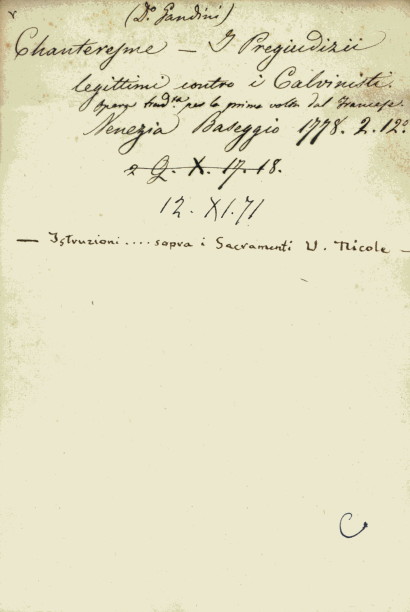 (D.º Gandini)
Chanteresme — I Pregiudizii
legittimi contro i Calvinisti.
opera trad.ta per la prima volta dal Francese.
Venezia Baseggio 1778. 2. 12º
2 Q. X. 17. 18.
12. XI. 71
— Istruzioni .... sopra i Sacramenti V. Nicole —
C